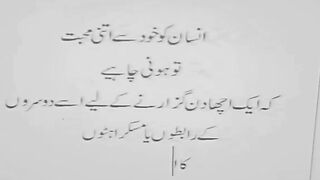 انسان کو خود سے اتنی محبت
تو ہونی چاہیے
کہ ایک اچھا دن گزارنے کے لیے اسے دوسروں
کے رابطوں یا مسکراہٹوں
کا ا